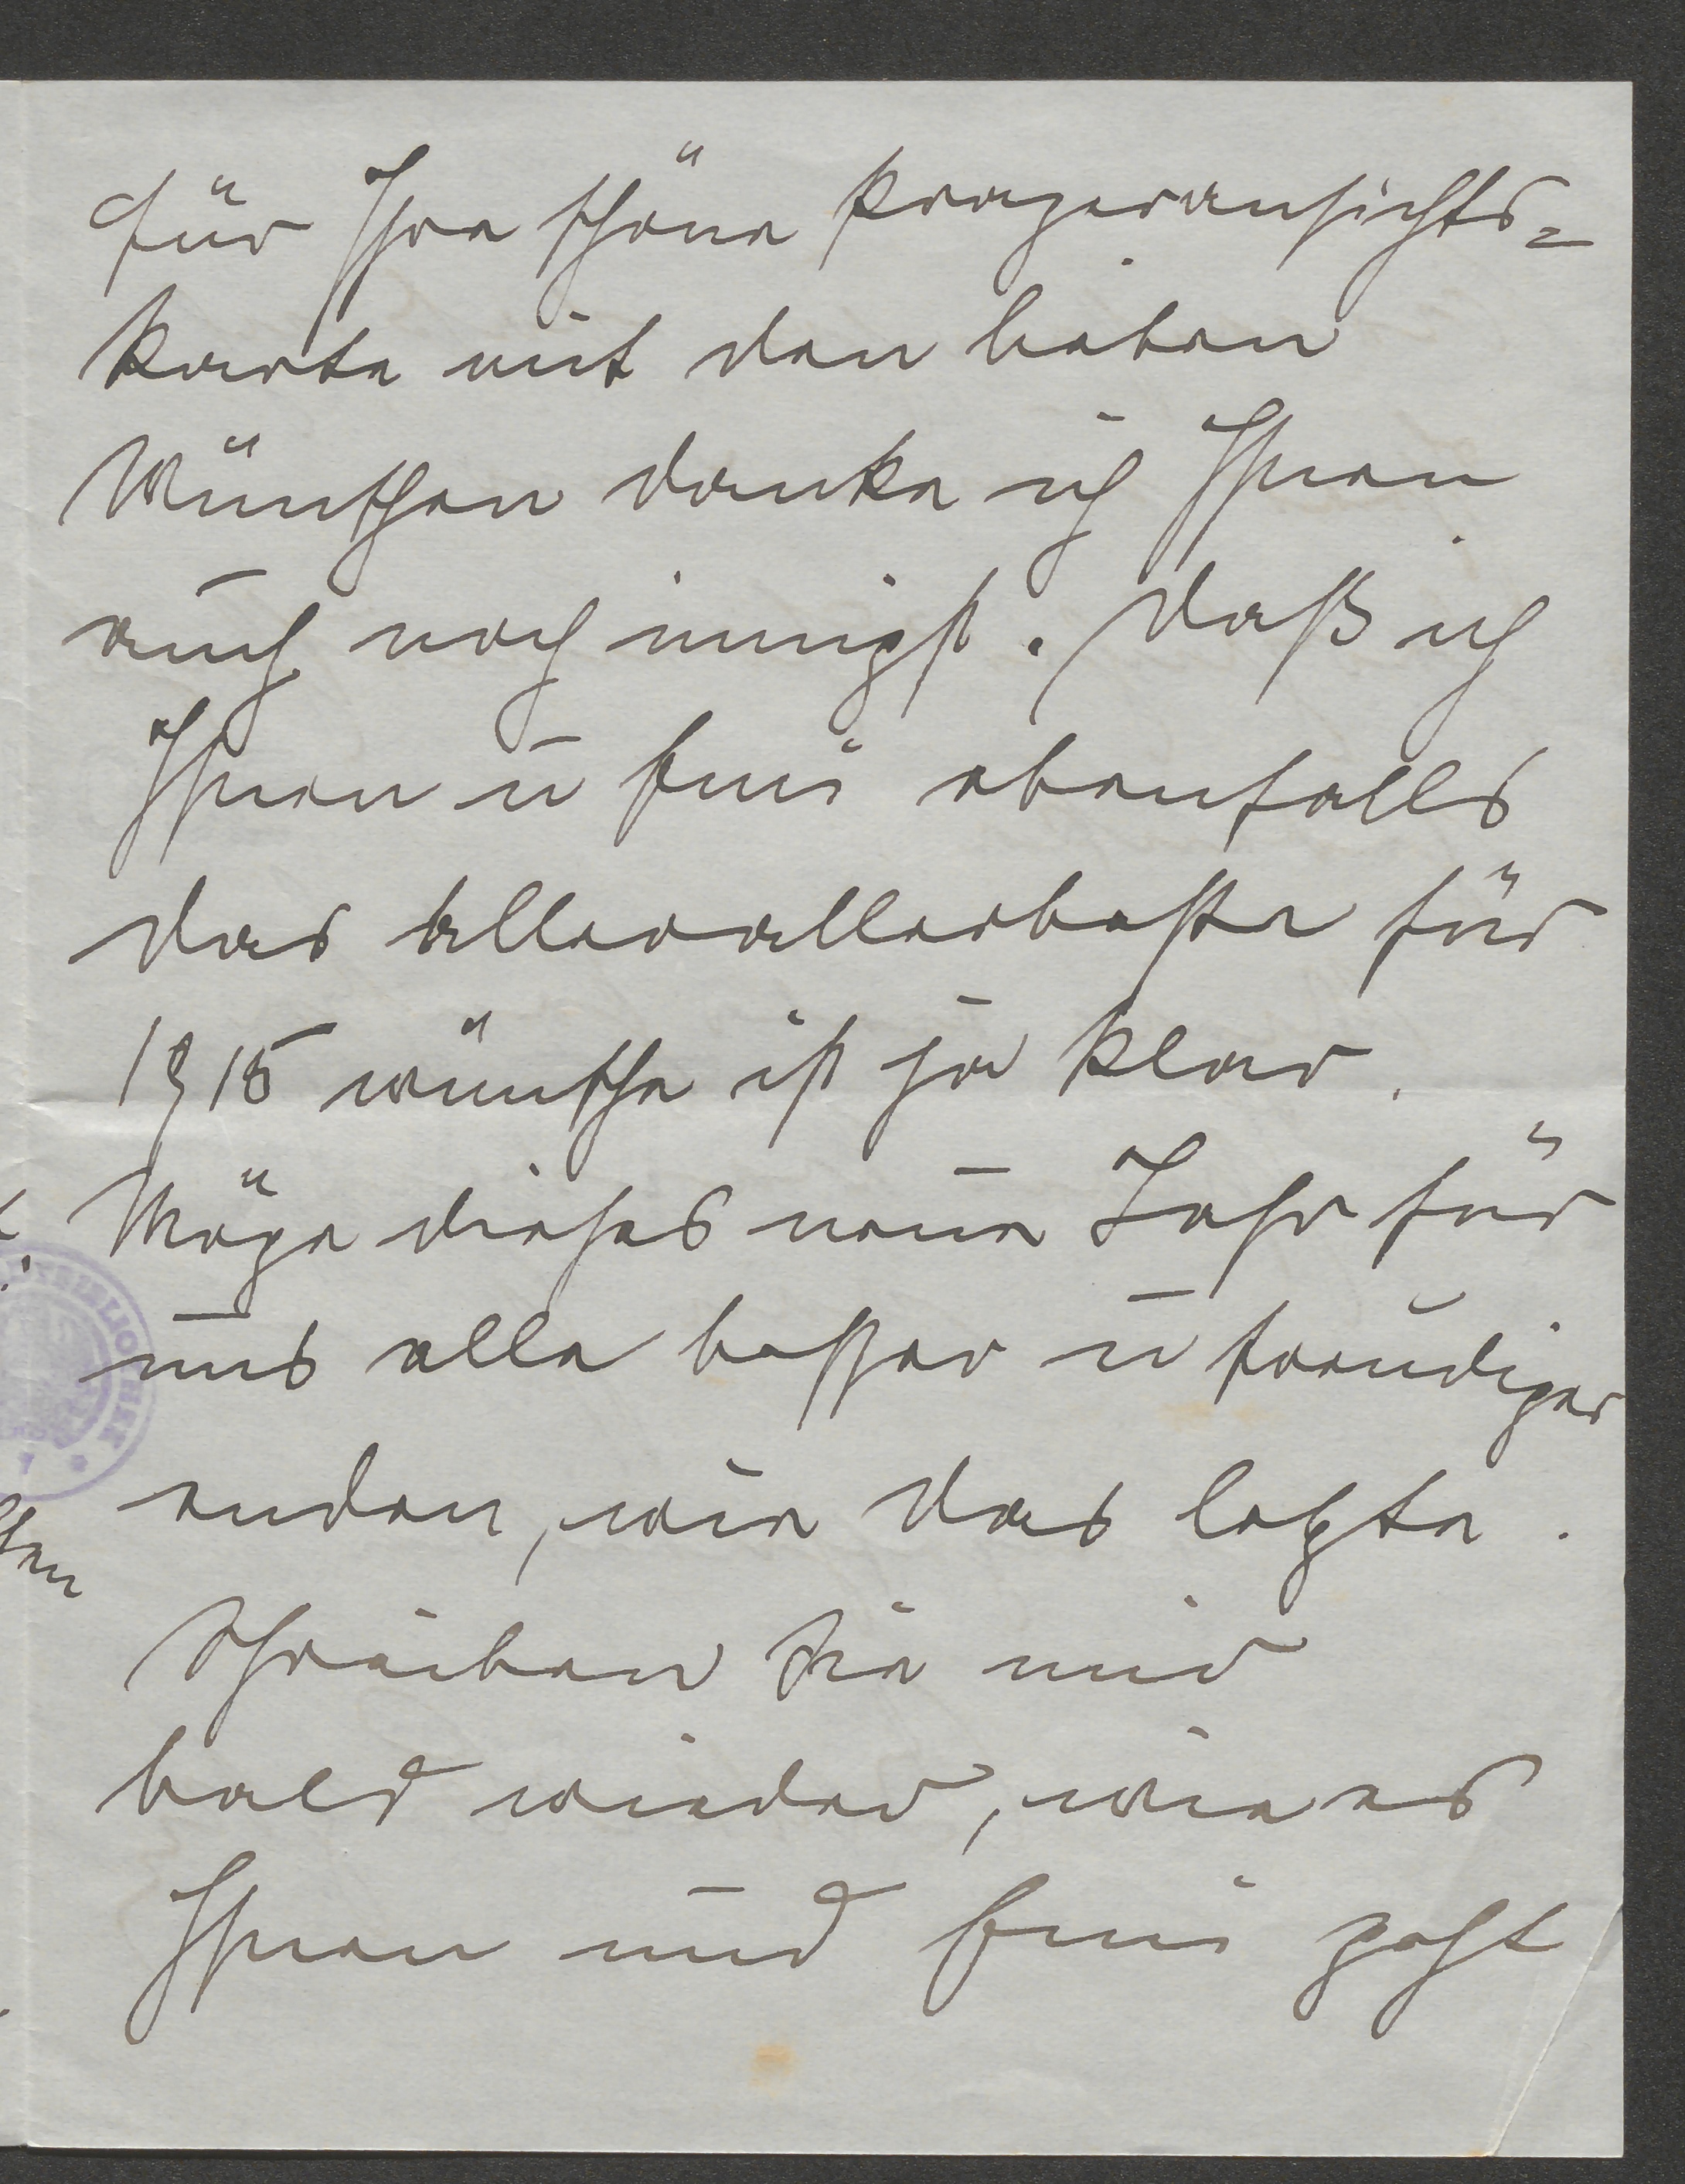 für Ihre schöne Prageransichts=
karte mit den lieben
Wünschen danke ich Ihnen
auch noch innigst. Daß ich
Ihnen u Emi ebenfalls
das allerallerbeste für
1915 wünsche ist ja klar.
Möge dieses neue Jahr für
uns alle besser u freudiger
enden, wie das letzte.
Schreiben Sie mir
bald wieder, wie es
Ihnen und Emi geht